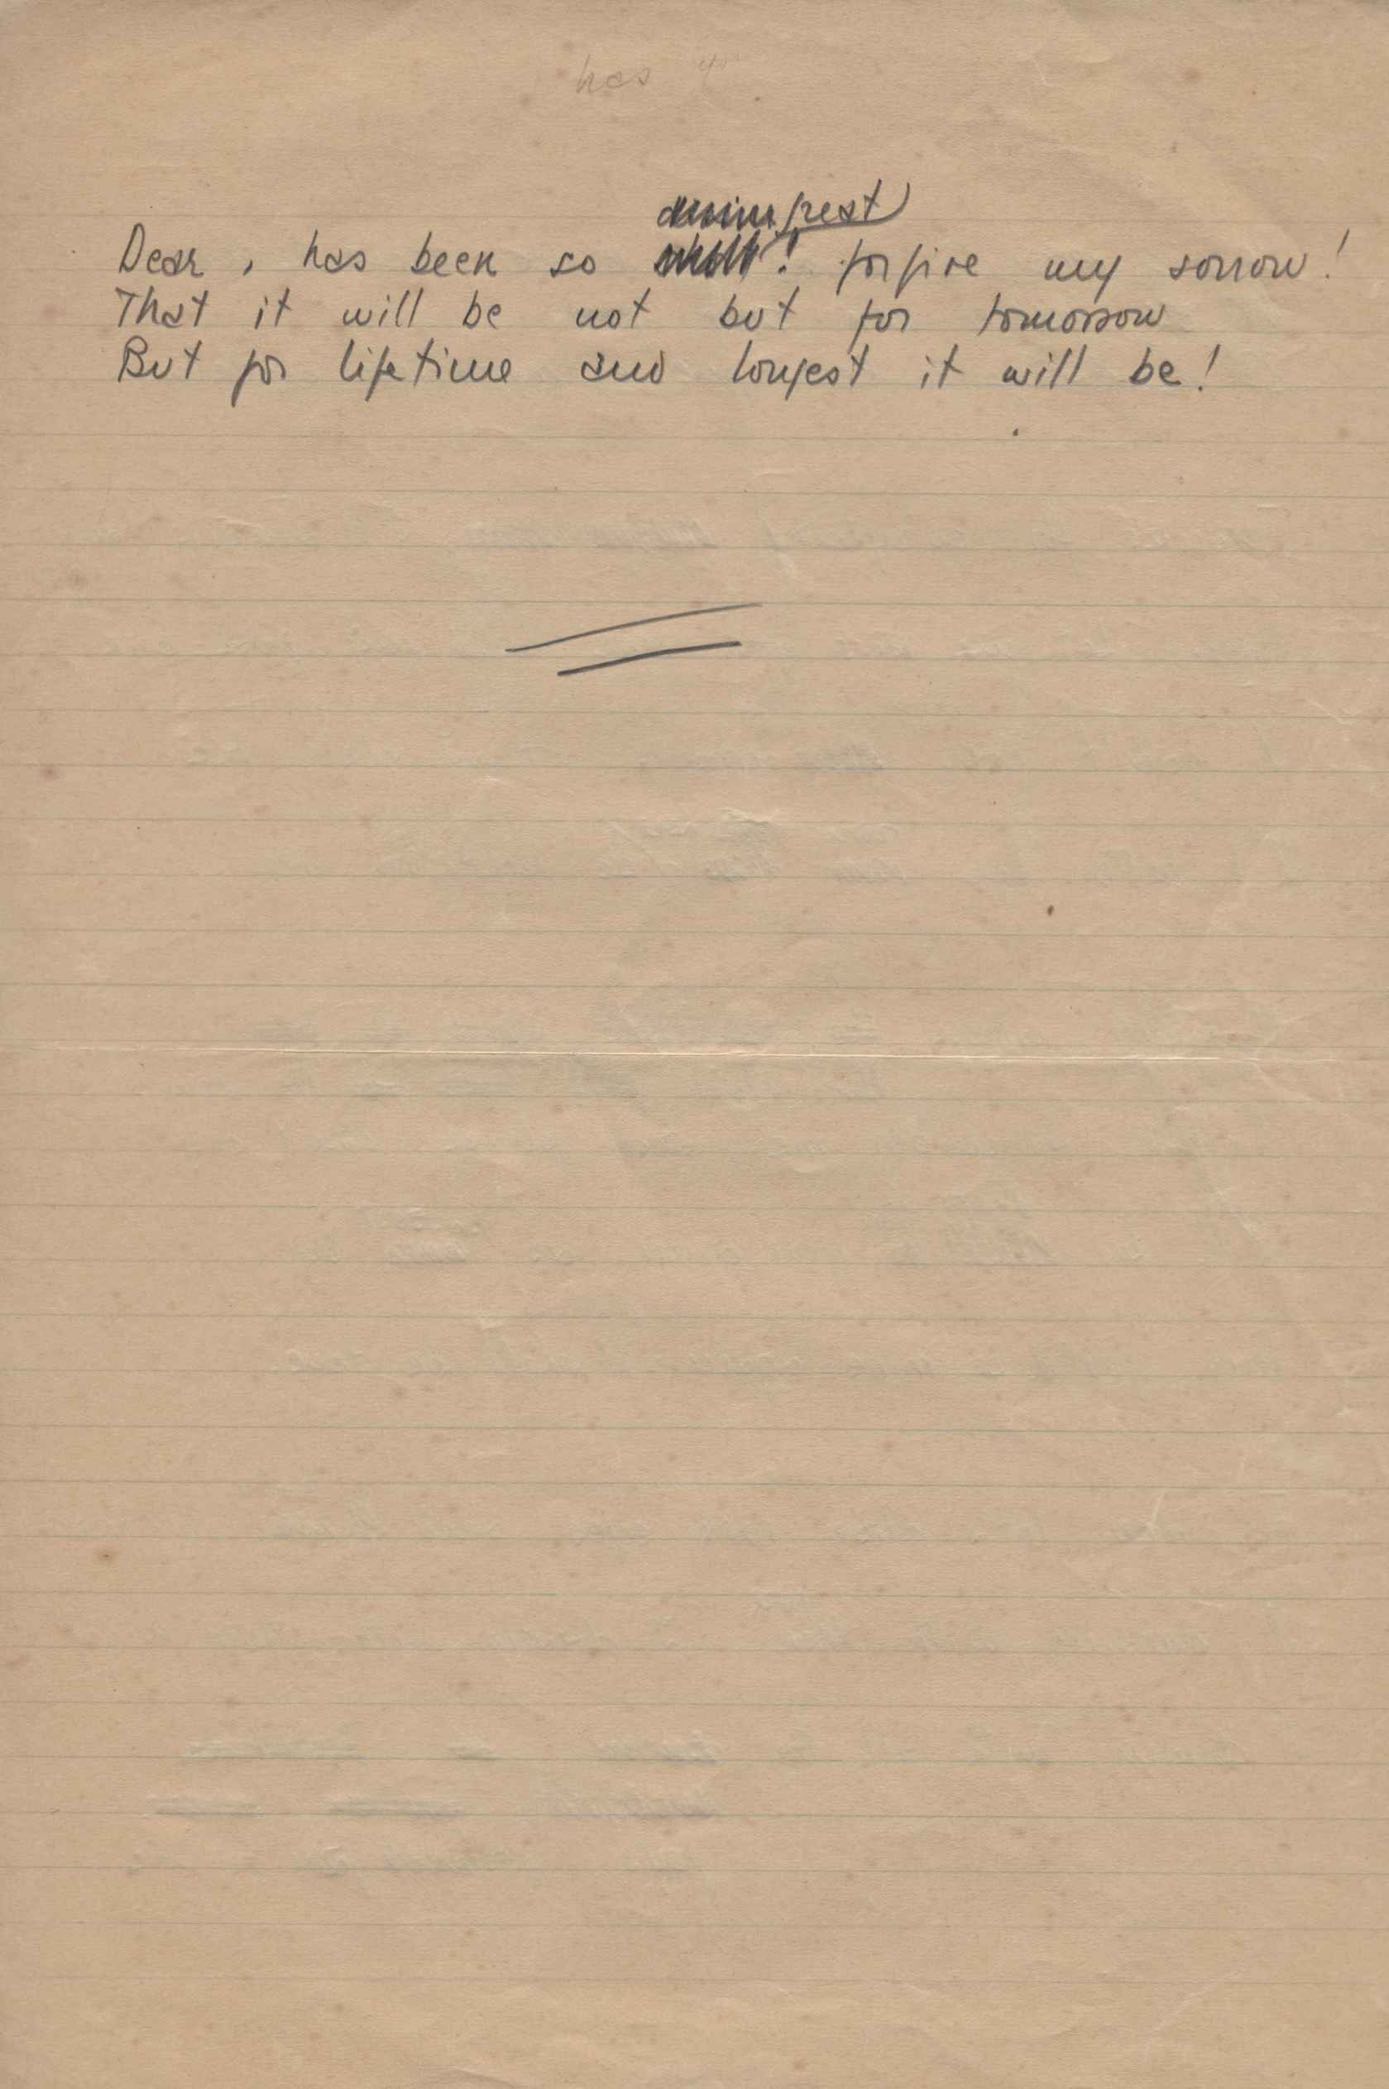 has
great
Dear, has been so ! forgive my sorrow!
That it will be not but for tomorrow
But for lifetime and longest it will be!